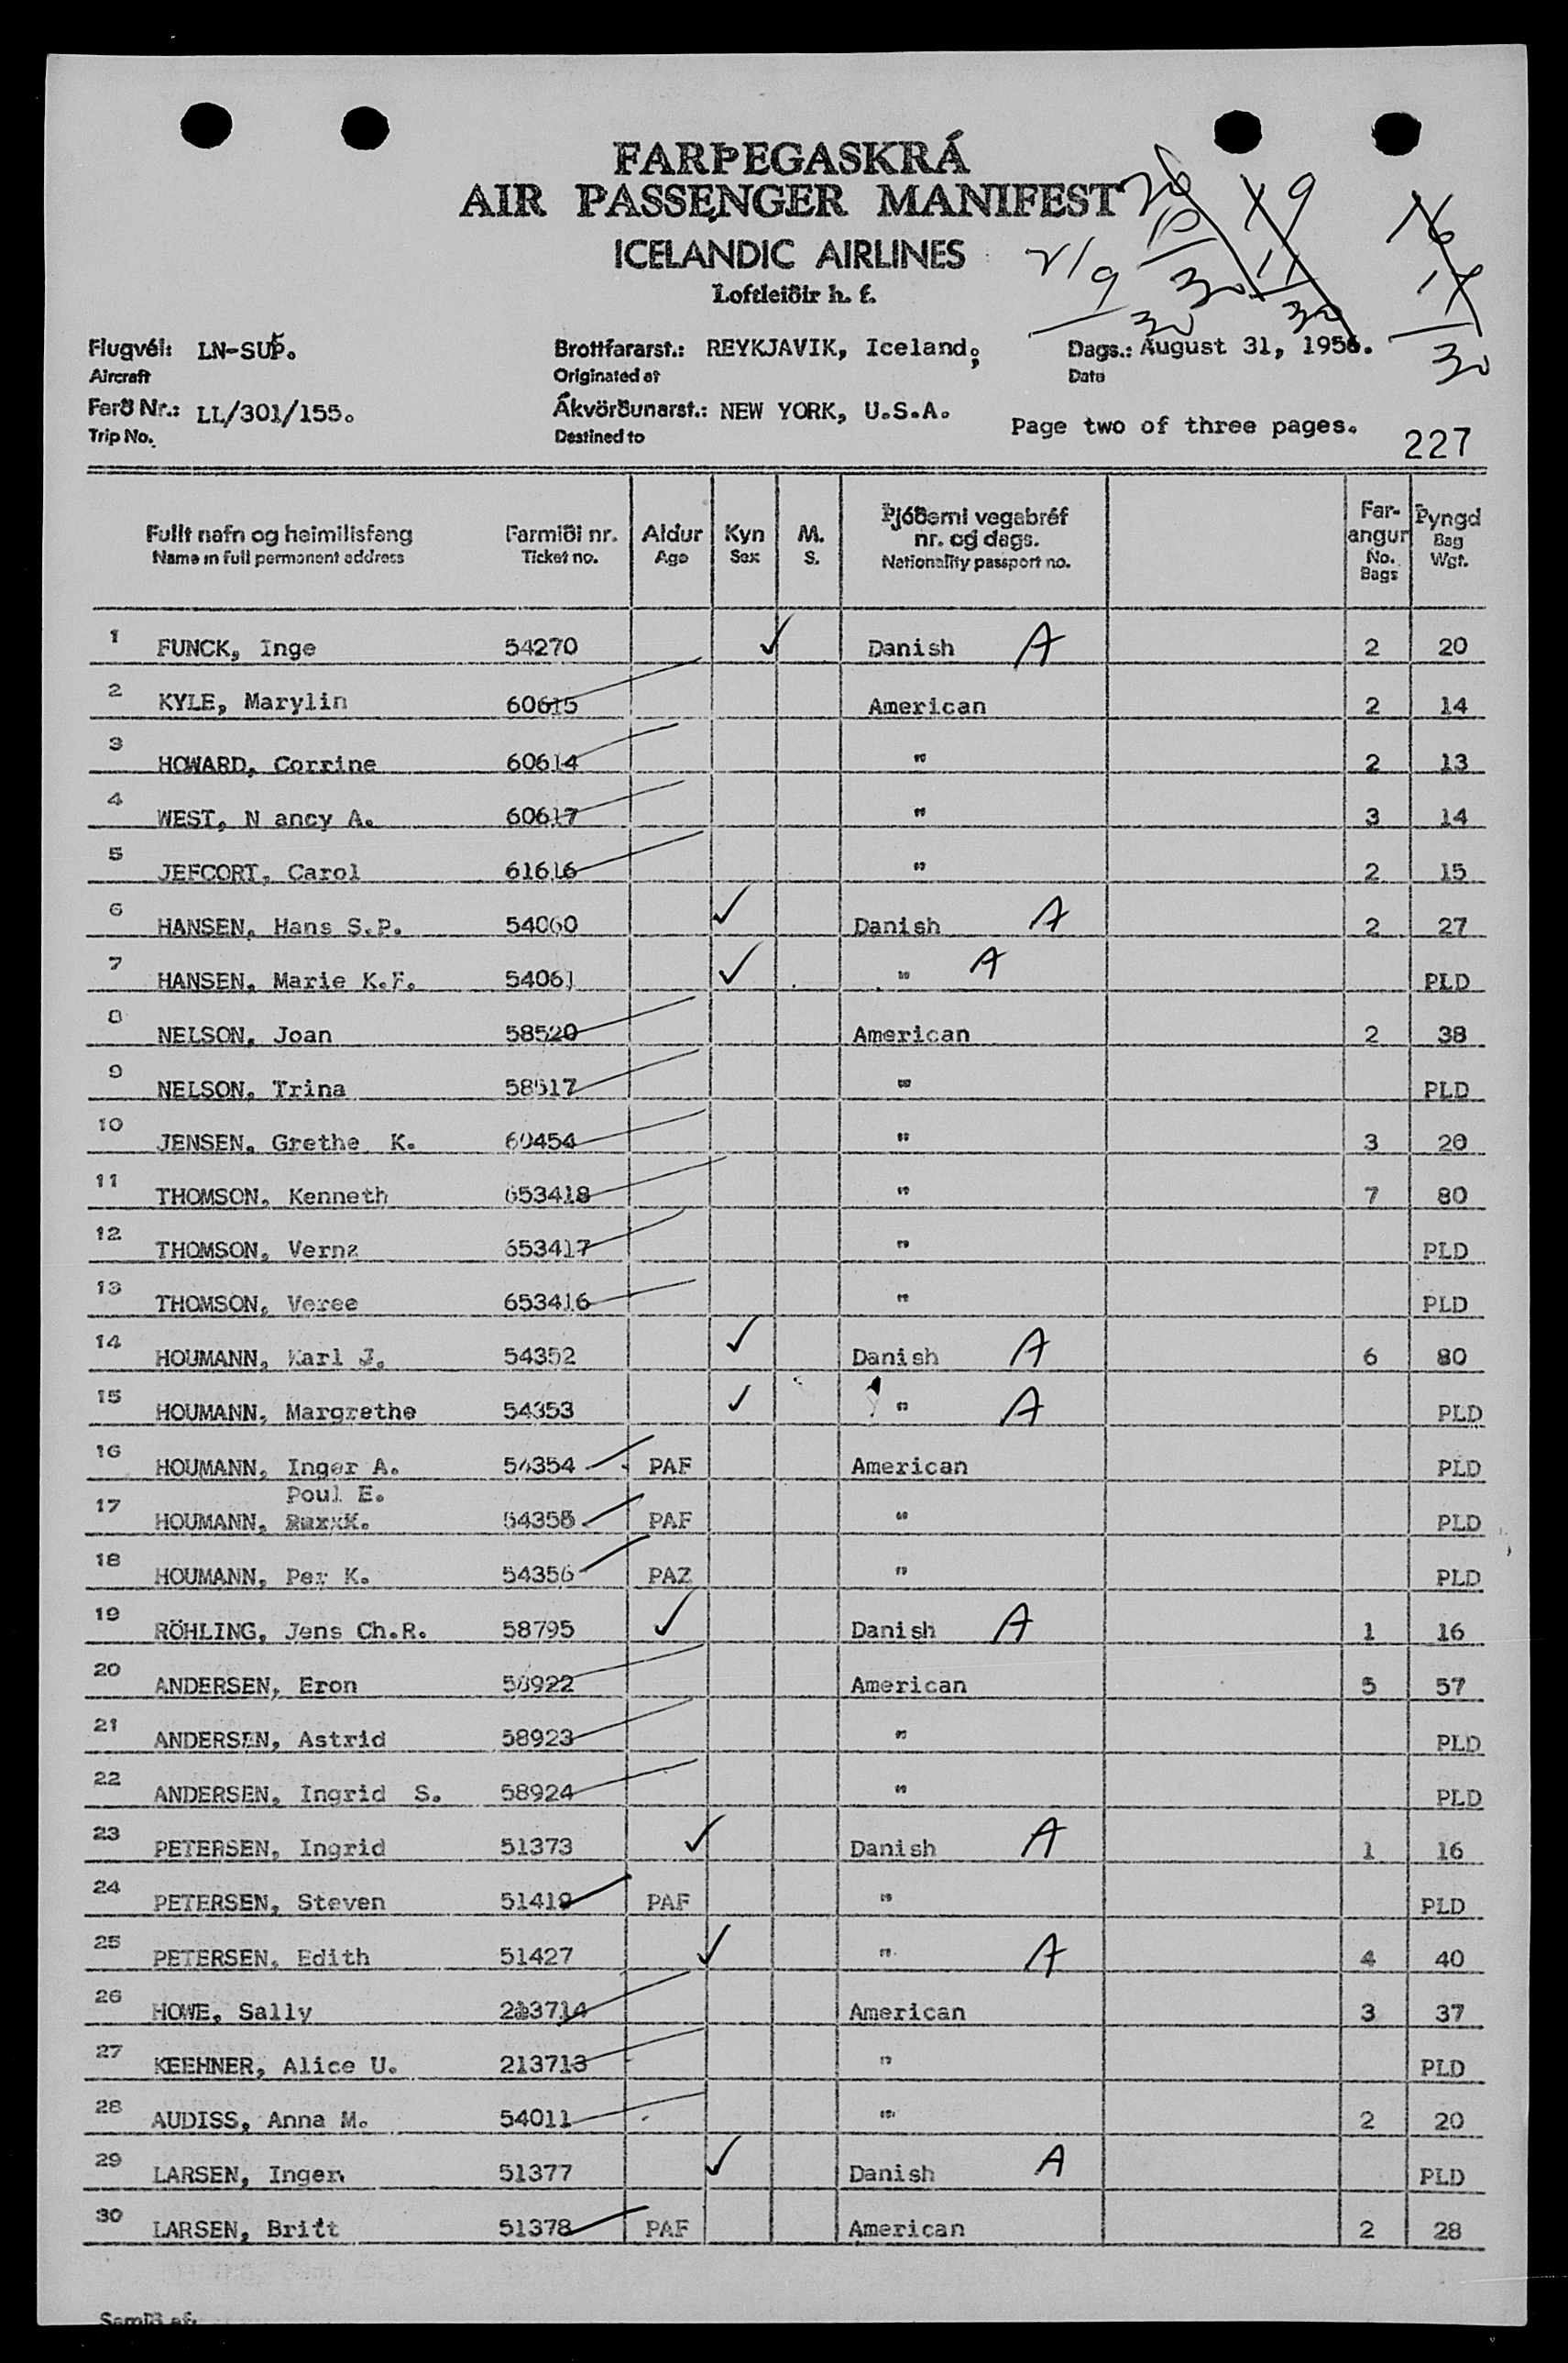 FARÞEGASKRÁ
AIR PASSENGER MANIFEST
ICELANDIC AIRLINES
Loftleiðir h. f.
26 19 16
10 11 14
30 30 30
21
9
30
Flugvél: LN-SUP. Brottfararst.: REYKJAVIK, Iceland; Dags.: August 31, 1956.
Aircraft Originated at Date
Ferð Nr.: LL/301/155. Ákvörðunarst.: NEW YORK, U.S.A. Page two of three pages.
Trip No. Destined to 227
Fullt nafn og heimilisfang Farmiði nr. Aldur Kyn M. Þjóðerni vegabréf nr. og dags. Farangur Þyngd
Name in full permanent address Ticket no. Age Sex S. Nationality passport no. No. Bags Bag Wgt.
1 FUNCK, Inge 54270 ✓ Danish A 2 20
2 KYLE, Marylin 60615 American 2 14
3 HOWARD, Corrine 60614 " 2 13
4 WEST, N ancy A. 60617 " 3 14
5 JEFCORT, Carol 61616 " 2 15
6 HANSEN, Hans S.P. 54060 ✓ Danish A 2 27
7 HANSEN, Marie K.F. 54061 ✓ " A PLD
8 NELSON, Joan 58520 American 2 38
9 NELSON, Trina 58517 " PLD
10 JENSEN, Grethe K. 60454 " 3 20
11 THOMSON, Kenneth 653418 " 7 80
12 THOMSON, Verna 653417 " PLD
13 THOMSON, Veree 653416 " PLD
14 HOUMANN, Karl J. 54352 ✓ Danish A 6 80
15 HOUMANN, Margrethe 54353 ✓ " A PLD
16 HOUMANN, Inger A. 54354 PAF American PLD
Poul E.
17 HOUMANN, 54355 PAF " PLD
18 HOUMANN, Per K. 54356 PAZ " PLD
19 RÖHLING, Jens Ch.R. 58795 ✓ Danish A 1 16
20 ANDERSEN, Eron 58922 American 5 57
21 ANDERSEN, Astrid 58923 " PLD
22 ANDERSEN, Ingrid S. 58924 " PLD
23 PETERSEN, Ingrid 51373 ✓ Danish A 1 16
24 PETERSEN, Steven 51419 PAF " PLD
25 PETERSEN, Edith 51427 ✓ " A 4 40
26 HOWE, Sally 213714 American 3 37
27 KEEHNER, Alice U. 213713 " PLD
28 AUDISS, Anna M. 54011 " 2 20
29 LARSEN, Inger 51377 ✓ Danish A PLD
30 LARSEN, Britt 51378 PAF American 2 28